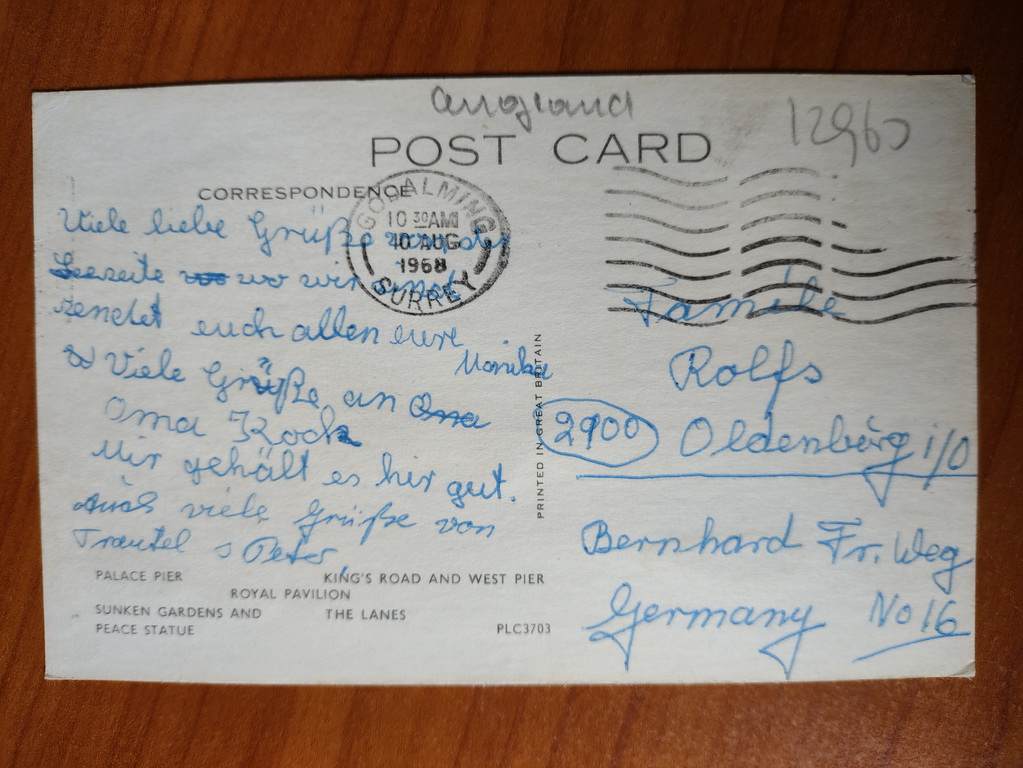 England
12960
POST CARD
CORRESPONDENCE
GODALMING
10 30 AM
10 AUG
1968
SURREY
Viele liebe Grüße von der
Seeseite wo wir
sendet euch allen eure
Monika
Viele Grüße an Oma
Oma Kock
Mir gehält es hir gut.
Auch viele Grüße von
Trautel s Peter
Familie
Rolfs
2900 Oldenburg i/O
Bernhard Fr. Weg
Germany No 16
PRINTED IN GREAT BRITAIN
PALACE PIER KING'S ROAD AND WEST PIER
ROYAL PAVILION
SUNKEN GARDENS AND THE LANES
PEACE STATUE PLC3703